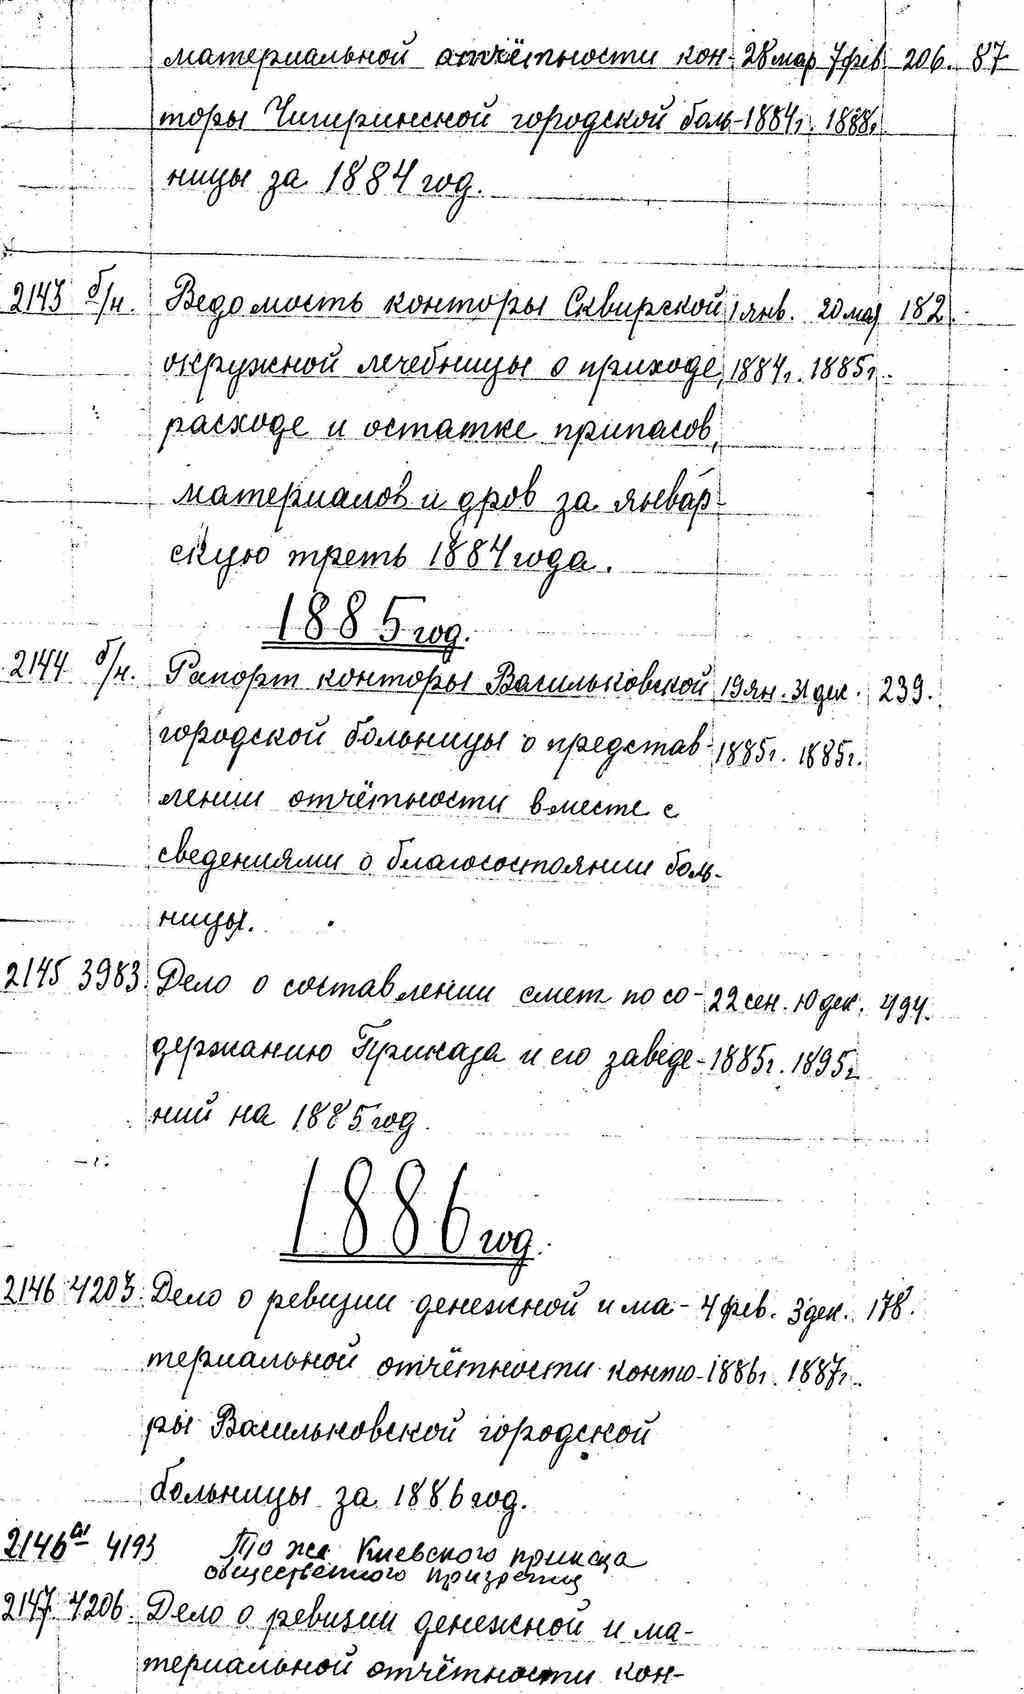 материальной отчётности кон- 28 мар 7 фев 206. 87
торы Чигиринской городской боль- 1884г. 1888г.
ницы за 1884 год.
2143 б/н. Ведомость конторы Сквирской 1 янв. 20 мая 182.
окружной лечебницы о приходе, 1884г. 1885г.
расходе и остатке припасов,
материалов и дров за январ-
скую треть 1884 года.
1885 год.
2144 б/н. Рапорт конторы Васильковской 19 ян. 31 дек. 239.
городской больницы о представ- 1885г. 1885г.
лении отчётности вместе с
сведениями о благосостоянии боль-
ницы.
2145 3983. Дело о составлении смет по со- 22 сен. 10 дек. 494.
держанию Приказа и его заведе- 1885г. 1895г.
ний на 1885 год.
1886 год.
2146 4203. Дело о ревизии денежной и ма- 4 фев. 3 дек. 178.
териальной отчётности конто- 1886г. 1887г.
ры Васильковской городской
больницы за 1886 год.
2146а 4193 То же Киевского приказа
общественного призрения
2147 4206. Дело о ревизии денежной и ма-
териальной отчётности кон-